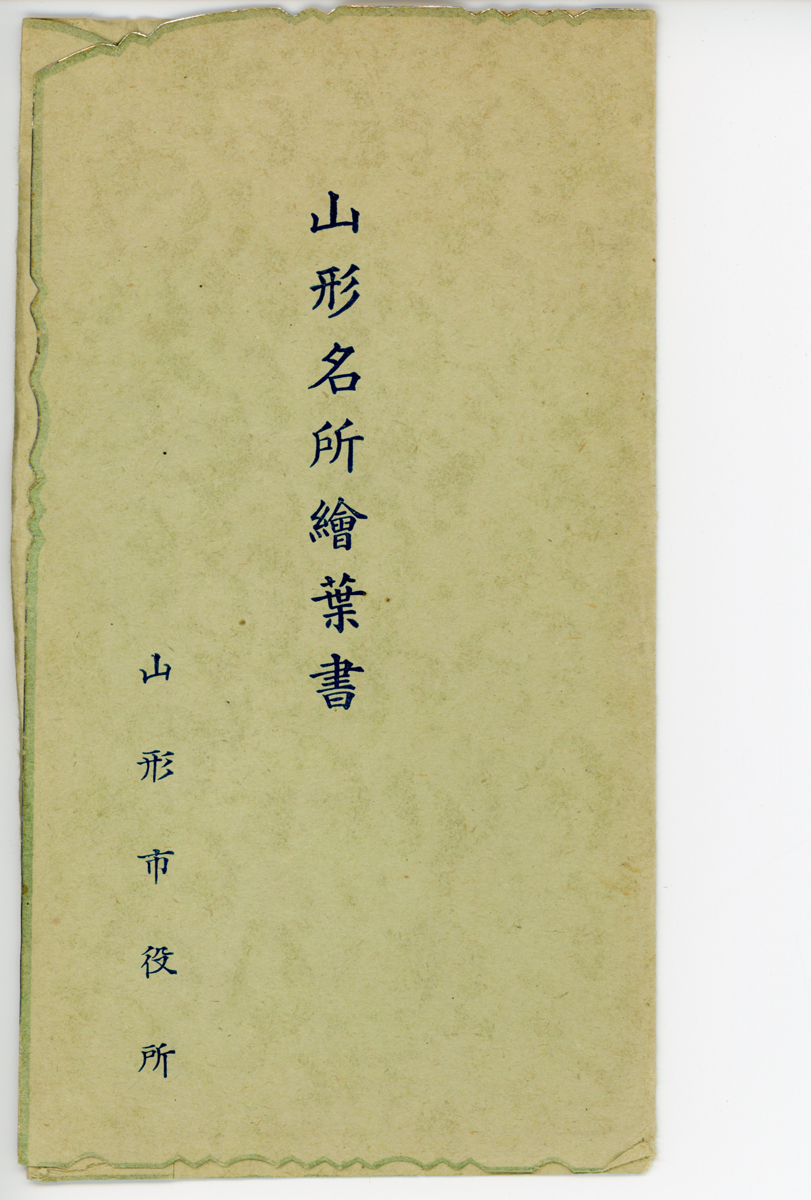 山形名所繪葉書
山形市役所